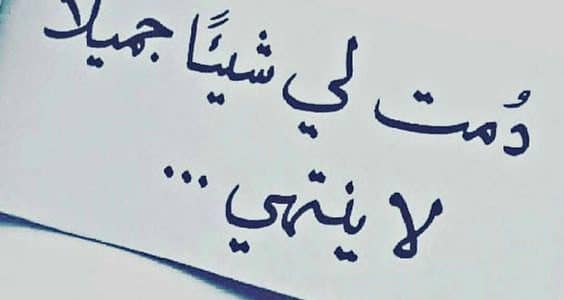 دُمت لي شيئًا جميلا
لا ينتهي ...